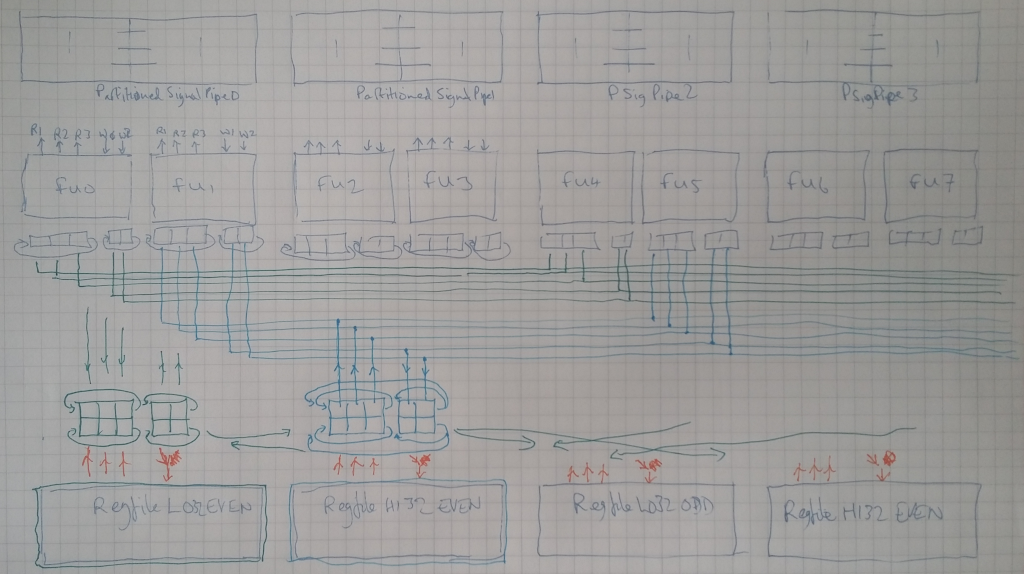 Partitioned Signal Pipe 0
Partitioned Signal Pipe 1
PSigPipe 2
PSigPipe 3
R1 R2 R3 W1 W2
R1 R2 R3 W1 W2
fu0
fu1
fu2
fu3
fu4
fu5
fu6
fu7
Regfile LO32 EVEN
Regfile HI32 EVEN
Regfile LO32 ODD
Regfile HI32 EVEN